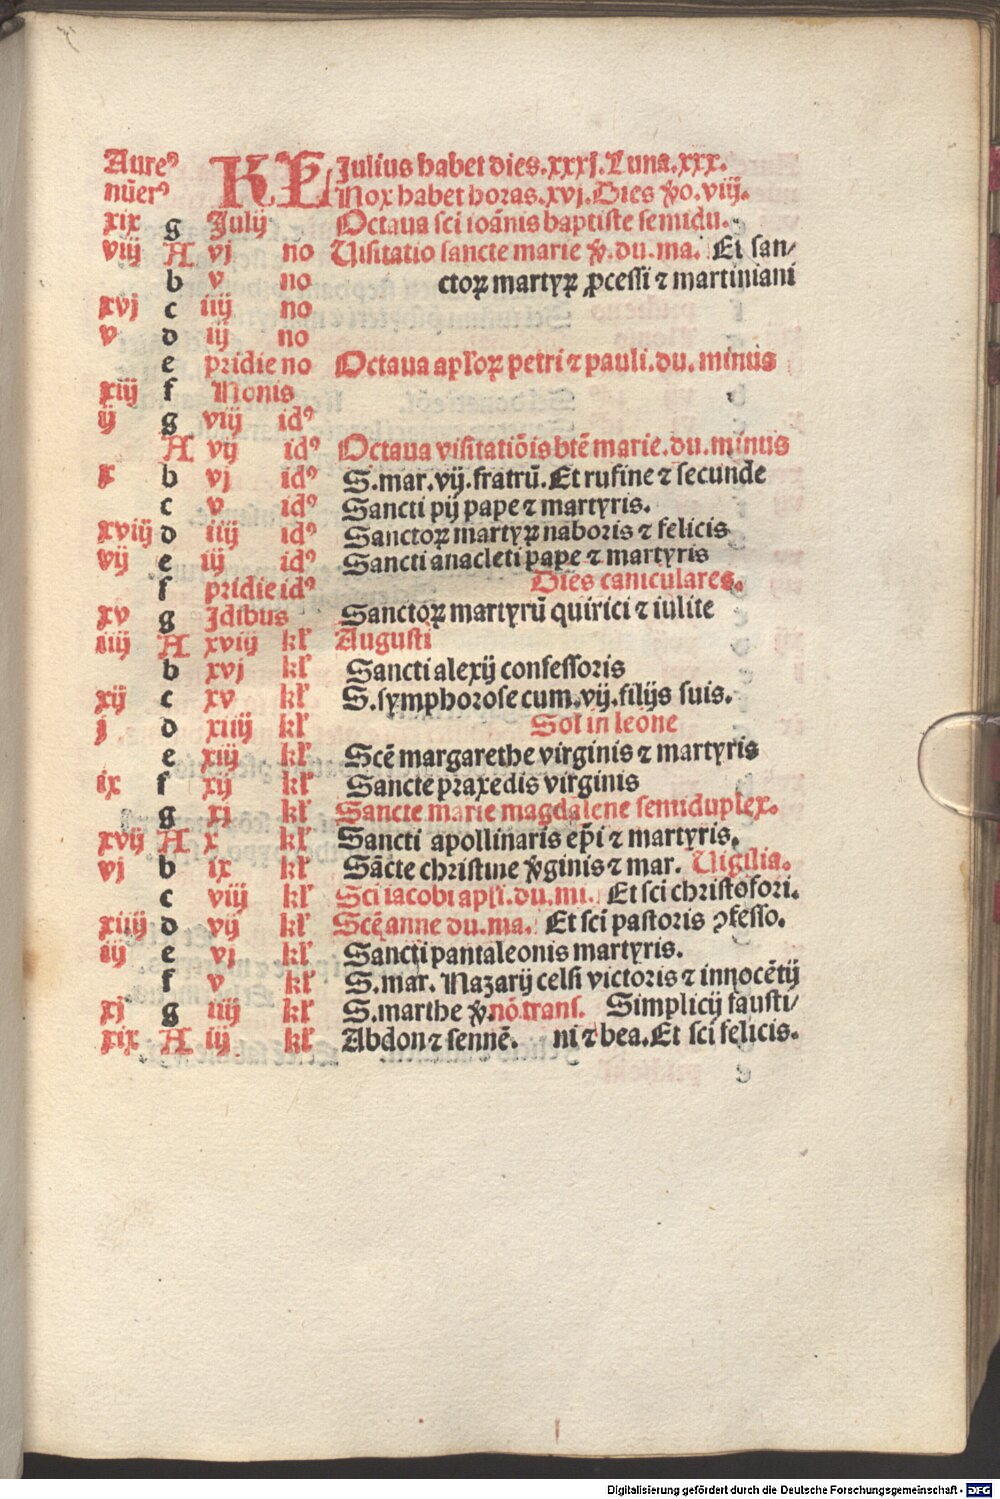 Aureꝰ KL̃ Julius habet dies.xxxj. Luna.xxx.
nũerꝰ Nox habet horas.xvj. Dies v̾o.viij.
xix g Julij Octaua sci ioãnis baptiste semidu.
viij A vj no Uisitatio sancte marie v̾. du. ma. Et san/
b v no ctoꝝ martyꝝ ꝓcessi ⁊ martiniani
xvj c iiij no
v d iij no
e pridie no Octaua apl'oꝝ petri ⁊ pauli. du. minus
xiij f Nonis
ij g viij idꝰ
A vij idꝰ Octaua visitatiõis btẽ marie. du. minus
x b vj idꝰ S. mar. vij. fratrũ. Et rufine ⁊ secunde
c v idꝰ Sancti pij pape ⁊ martyris.
xviij d iiij idꝰ Sanctoꝝ martyꝝ naboris ⁊ felicis
vij e iij idꝰ Sancti anacleti pape ⁊ martyris
f pridie idꝰ Dies caniculares.
xv g Idibus Sanctoꝝ martyrũ quirici ⁊ iulite
iiij A xviij kl' Augusti
b xvj kl' Sancti alexij confessoris
xij c xv kl' S. symphorose cum. vij. filijs suis.
j d xiiij kl' Sol in leone
e xiij kl' Scẽ margarethe virginis ⁊ martyris
ix f xij kl' Sancte praxedis virginis
g xj kl' Sancte marie magdalene semiduplex.
xvij A x kl' Sancti apollinaris ep̃i ⁊ martyris.
vj b ix kl' Sãcte christine v̾ginis ⁊ mar. Uigilia.
c viij kl' Sci iacobi apl'i. du. mi. Et sci christofori.
xiiij d vij kl' Scẽ anne du. ma. Et sci pastoris ꝯfesso.
iij e vj kl' Sancti pantaleonis martyris.
f v kl' S. mar. Nazarij celsi victoris ⁊ innocẽtij
xj g iiij kl' S. marthe v̾. nõ. trans. Simplicij fausti/
xix A iij kl' Abdon ⁊ sennẽ. ni ⁊ bea. Et sci felicis.
Digitalisierung gefördert durch die Deutsche Forschungsgemeinschaft - DFG